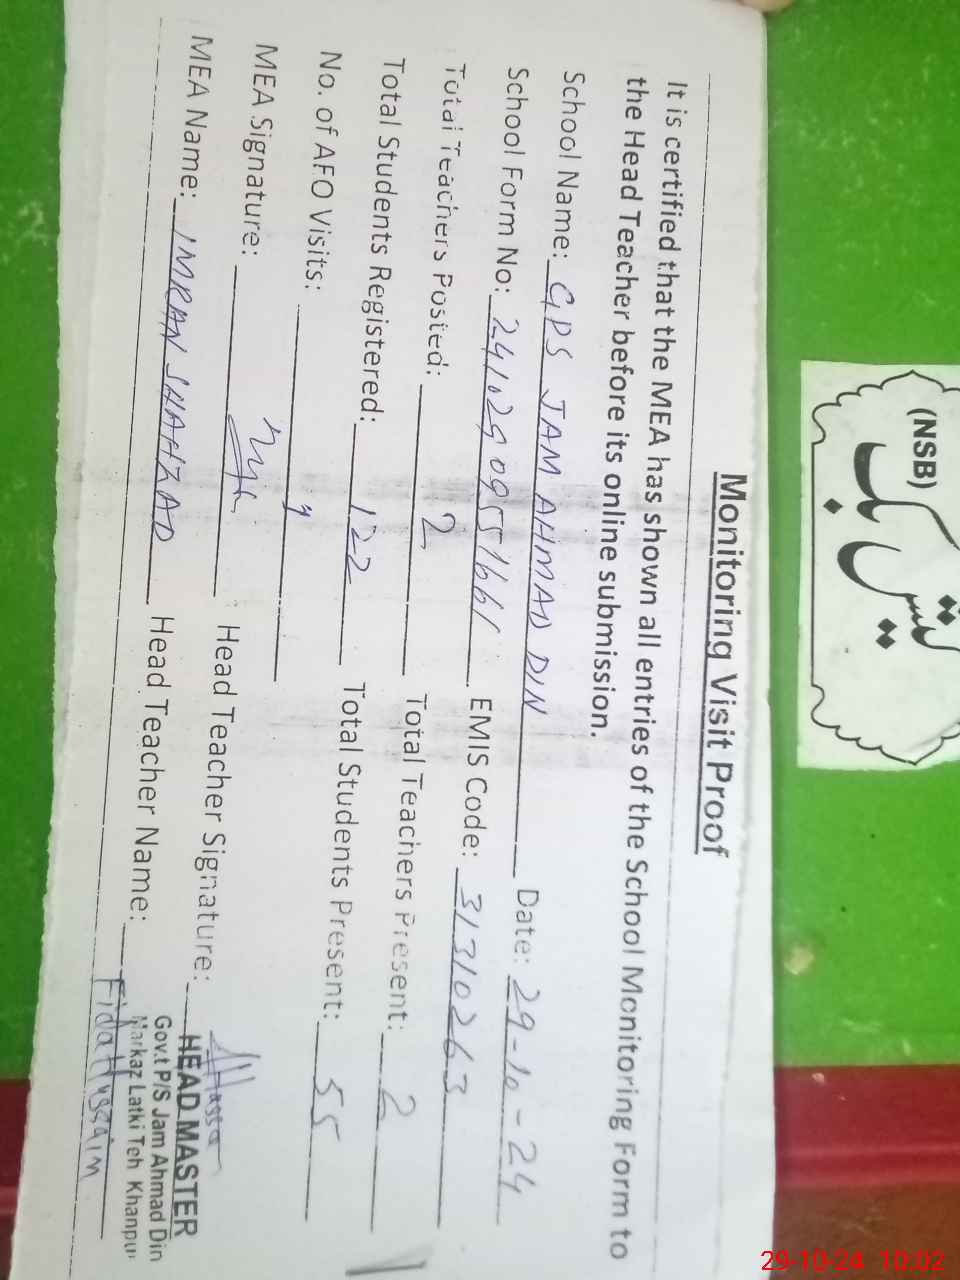 (NSB)
Monitoring Visit Proof
It is certified that the MEA has shown all entries of the School Monitoring Form to
the Head Teacher before its online submission.
School Name: GPS JAM AHMAD DIN Date: 29-10-24
School Form No: EMIS Code: 31310263
Total Teachers Posted: 2 Total Teachers Present: 2
Total Students Registered: 122 Total Students Present: 55
No. of AFO Visits:
MEA Signature: Head Teacher Signature:
MEA Name: IMRAN SHAHZAD Head Teacher Name: Fida Hussain
HEAD MASTER
Gov.t P/S Jam Ahmad Din
Markaz Latki Teh Khanpur
29-10-24 10:02